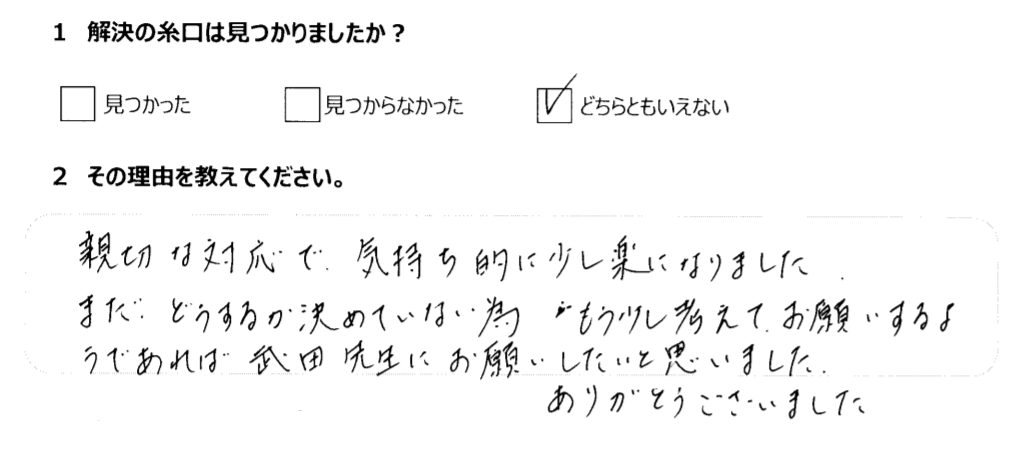 1 解決の糸口は見つかりましたか？
見つかった 見つからなかった どちらともいえない
2 その理由を教えてください。
親切な対応で、気持ち的に少し楽になりました。
まだ、どうするか決めていない為 もう少し考えて、お願いするよ
うであれば 武田先生にお願いしたいと思いました。
ありがとうございました